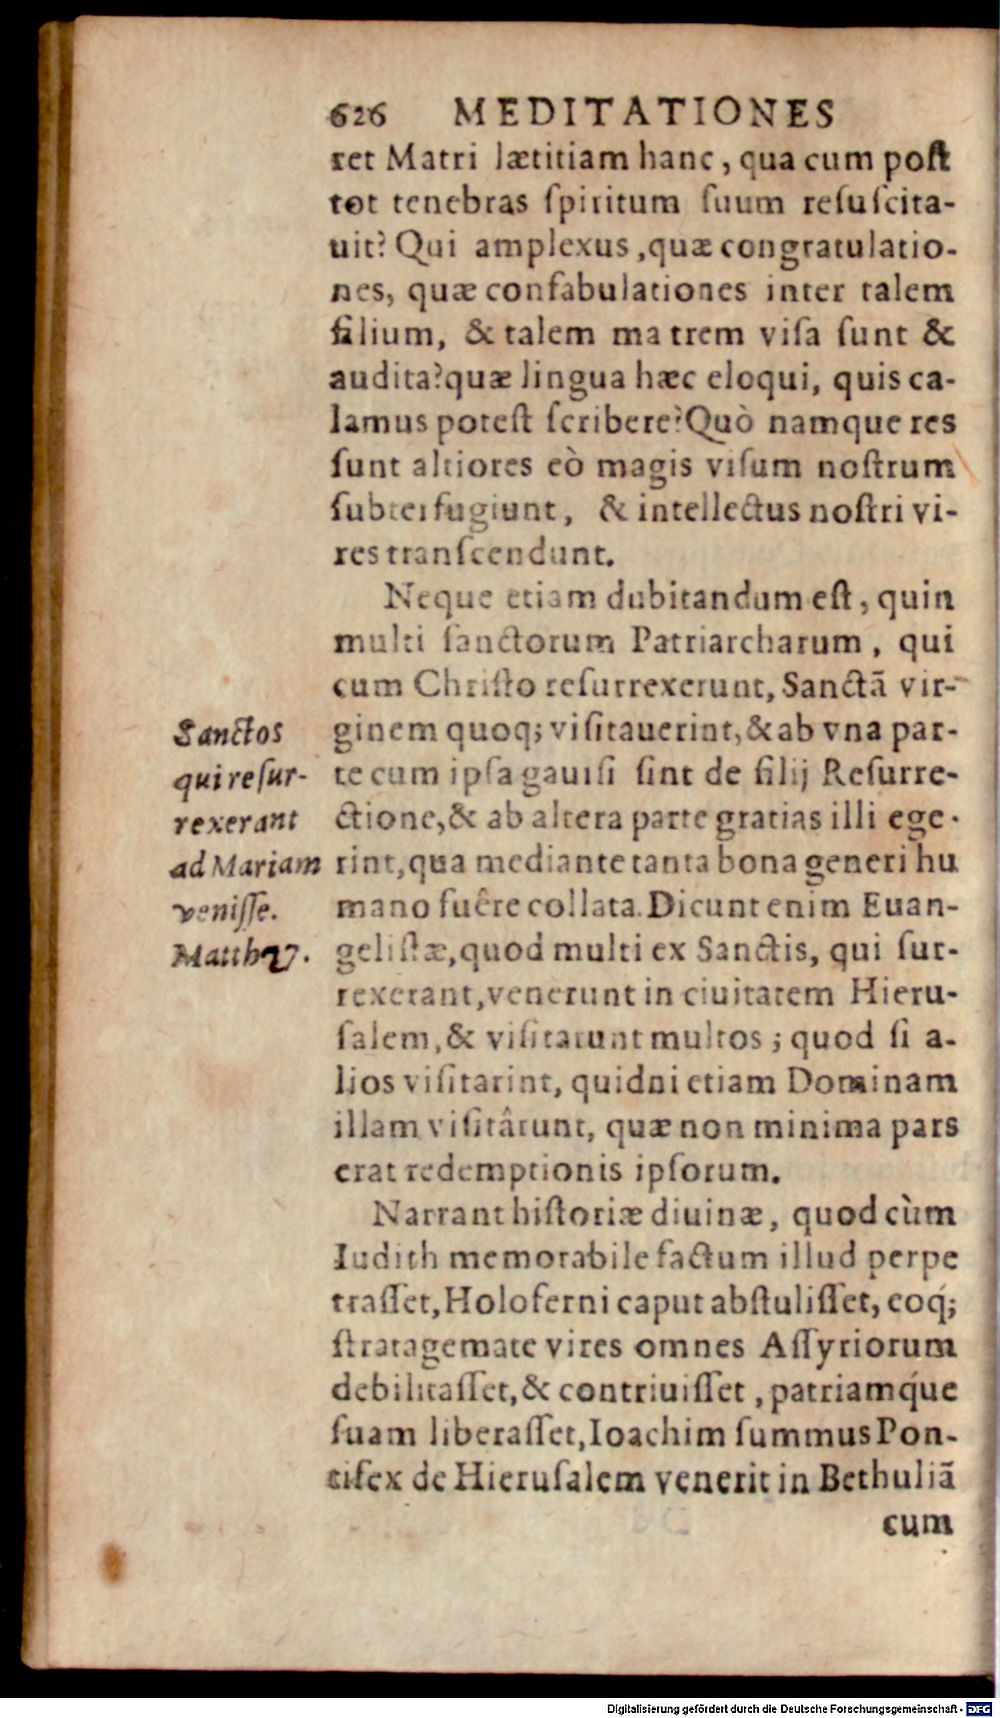 626 MEDITATIONES
ret Matri lætitiam hanc, qua cum poſt
tot tenebras ſpiritum ſuum reſuſcita-
uit? Qui amplexus, quæ congratulatio-
nes, quæ confabulationes inter talem
filium, & talem matrem viſa ſunt &
audita? quæ lingua hæc eloqui, quis ca-
lamus poteſt ſcribere? Quò namque res
ſunt altiores eò magis viſum noſtrum
ſubterfugiunt, & intellectus noſtri vi-
res tranſcendunt.
Neque etiam dubitandum eſt, quin
multi ſanctorum Patriarcharum, qui
cum Chriſto reſurrexerunt, Sanctã vir-
ginem quoq; viſitauerint, & ab vna par-
te cum ipſa gauiſi ſint de filij Reſurre-
ctione, & ab altera parte gratias illi ege-
rint, qua mediante tanta bona generi hu
mano fuêre collata. Dicunt enim Euan-
geliſtæ, quod multi ex Sanctis, qui ſur-
rexerant, venerunt in ciuitatem Hieru-
ſalem, & viſitarunt multos; quod ſi a-
lios viſitarint, quidni etiam Dominam
illam viſitârunt, quæ non minima pars
erat redemptionis ipſorum.
Narrant hiſtoriæ diuinæ, quod cùm
Iudith memorabile factum illud perpe
traſſet, Holoferni caput abſtuliſſet, eoq́;
ſtratagemate vires omnes Aſſyriorum
debilitaſſet, & contriuiſſet, patriamq́ue
ſuam liberaſſet, Ioachim ſummus Pon-
tifex de Hieruſalem venerit in Bethuliã
cum
Sanctos
qui reſur-
rexerant
ad Mariam
veniſſe.
Matth 27.
Digitalisierung gefördert durch die Deutsche Forschungsgemeinschaft - DFG